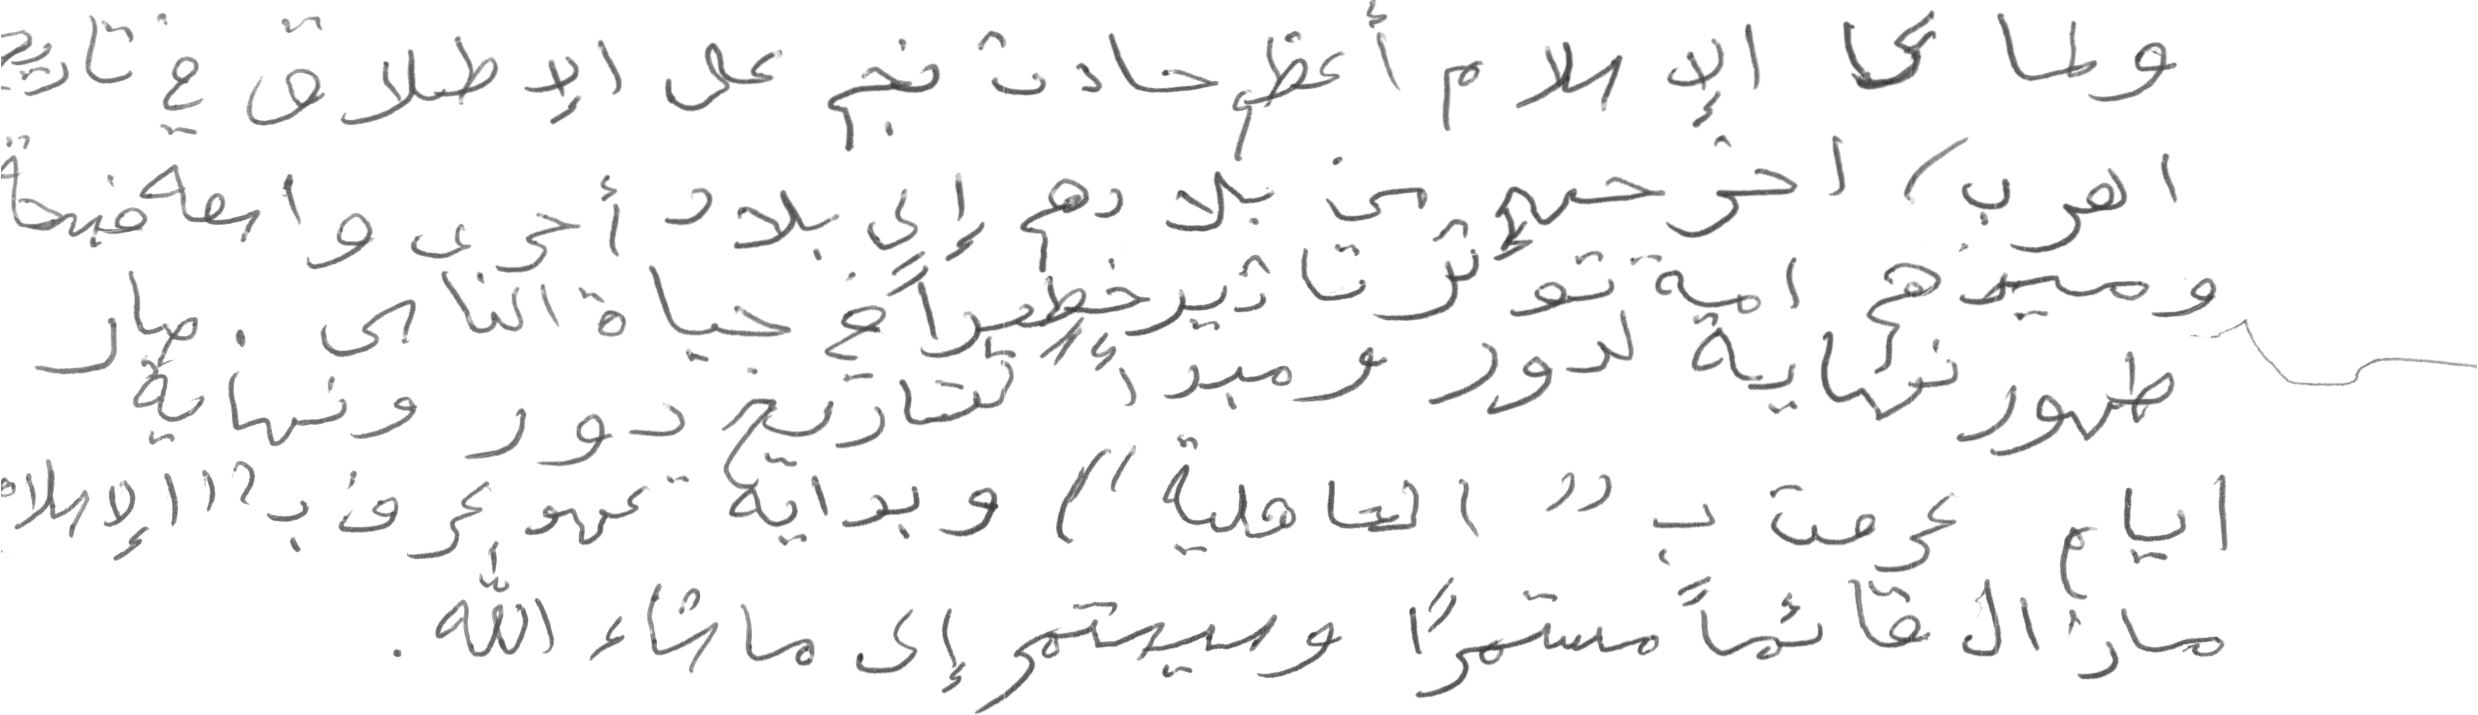 ولما كا الإسلام أعظم حادث نجم على الإطلاق في تاريخ
العرب، اخرجهم من بلادهم إلى بلاد أخرى واسعة فيحة
وصيرهم امة تؤثر تاثير خطيراً في حياة الناس . صار
ظهور نهاية لدور ومبدأ لتاريخ دور ونهاية
ايام عرفت ب "الجاهلية") وبداية عهد عرف ب "الإسلام
مازال قائماً مستمراً وسيستمر إلى ماشاء الله .